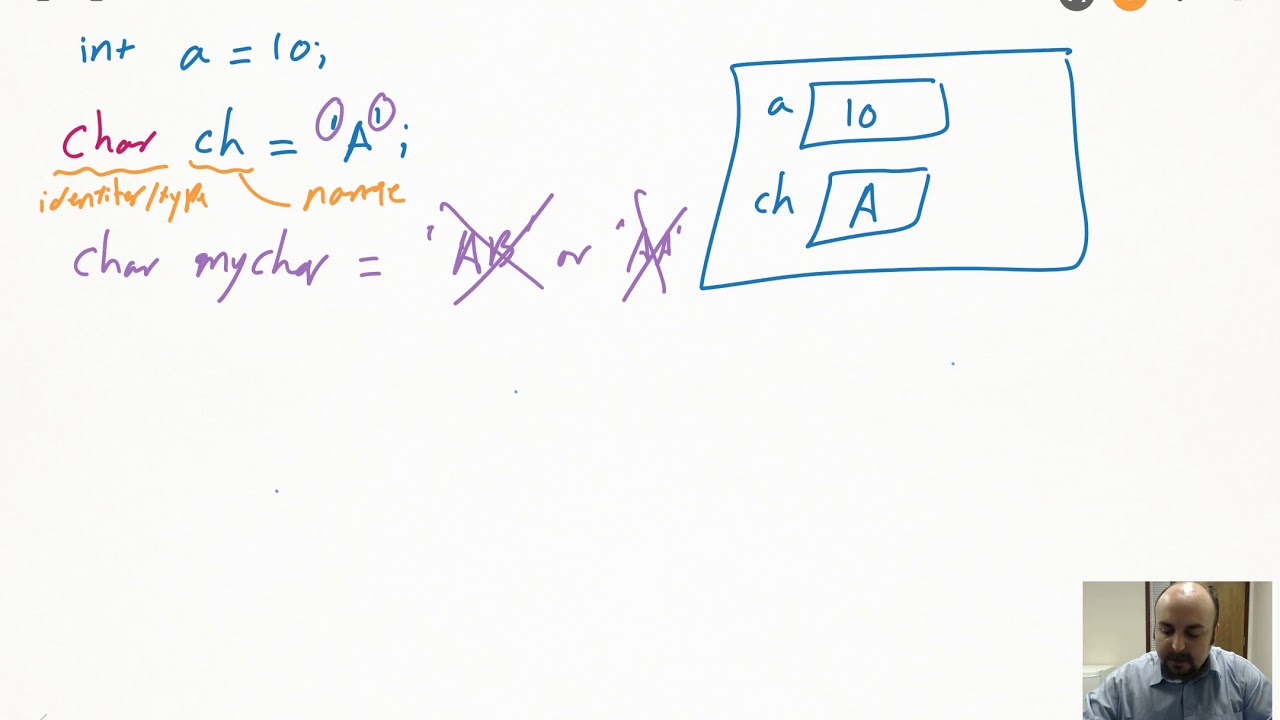 int a = 10;
char ch = 'A';
identifer/type name
char mychar = 'AB' or 'AA'
a 10
ch A